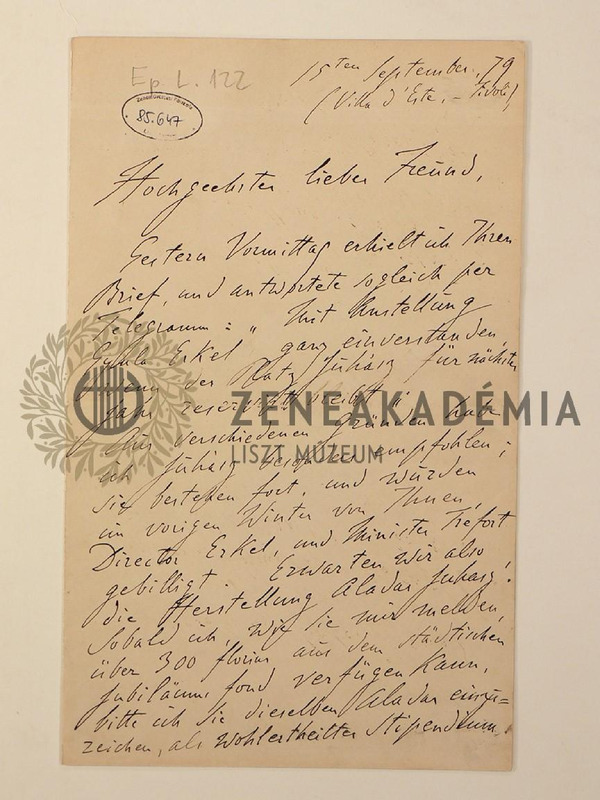 Ep L. 122
Zeneakadémia Könyvtára
85.647
15ten September, 79
(Villa d'Este, – Tivoli)
Hochgeehrter lieber Freund,
Gestern Vormittag erhielt ich Ihren
Brief, und antwortete sogleich per
Telegramm: „ Mit Anstellung
Gyula Erkel ganz einverstanden,
wenn der Platz Juhász für nächstes
Jahr reservirt bleibt".
Aus verschiedenen Gründen habe
ich Juhász besonders empfohlen;
sie bestehen fort, und wurden
im vorigen Winter von Ihnen,
Director Erkel, und Minister Trefort
gebilligt. Erwarten wir also
die Herstellung Aladar Juhasz!
Sobald ich, wie Sie mir melden,
über 300 florins aus dem städtischen
Jubiläums fond verfügen kann,
bitte ich Sie dieselben Aladar einzu=
zeichen, als wohlertheiltes Stipendium.
ZENEAKADÉMIA
LISZT MÚZEUM